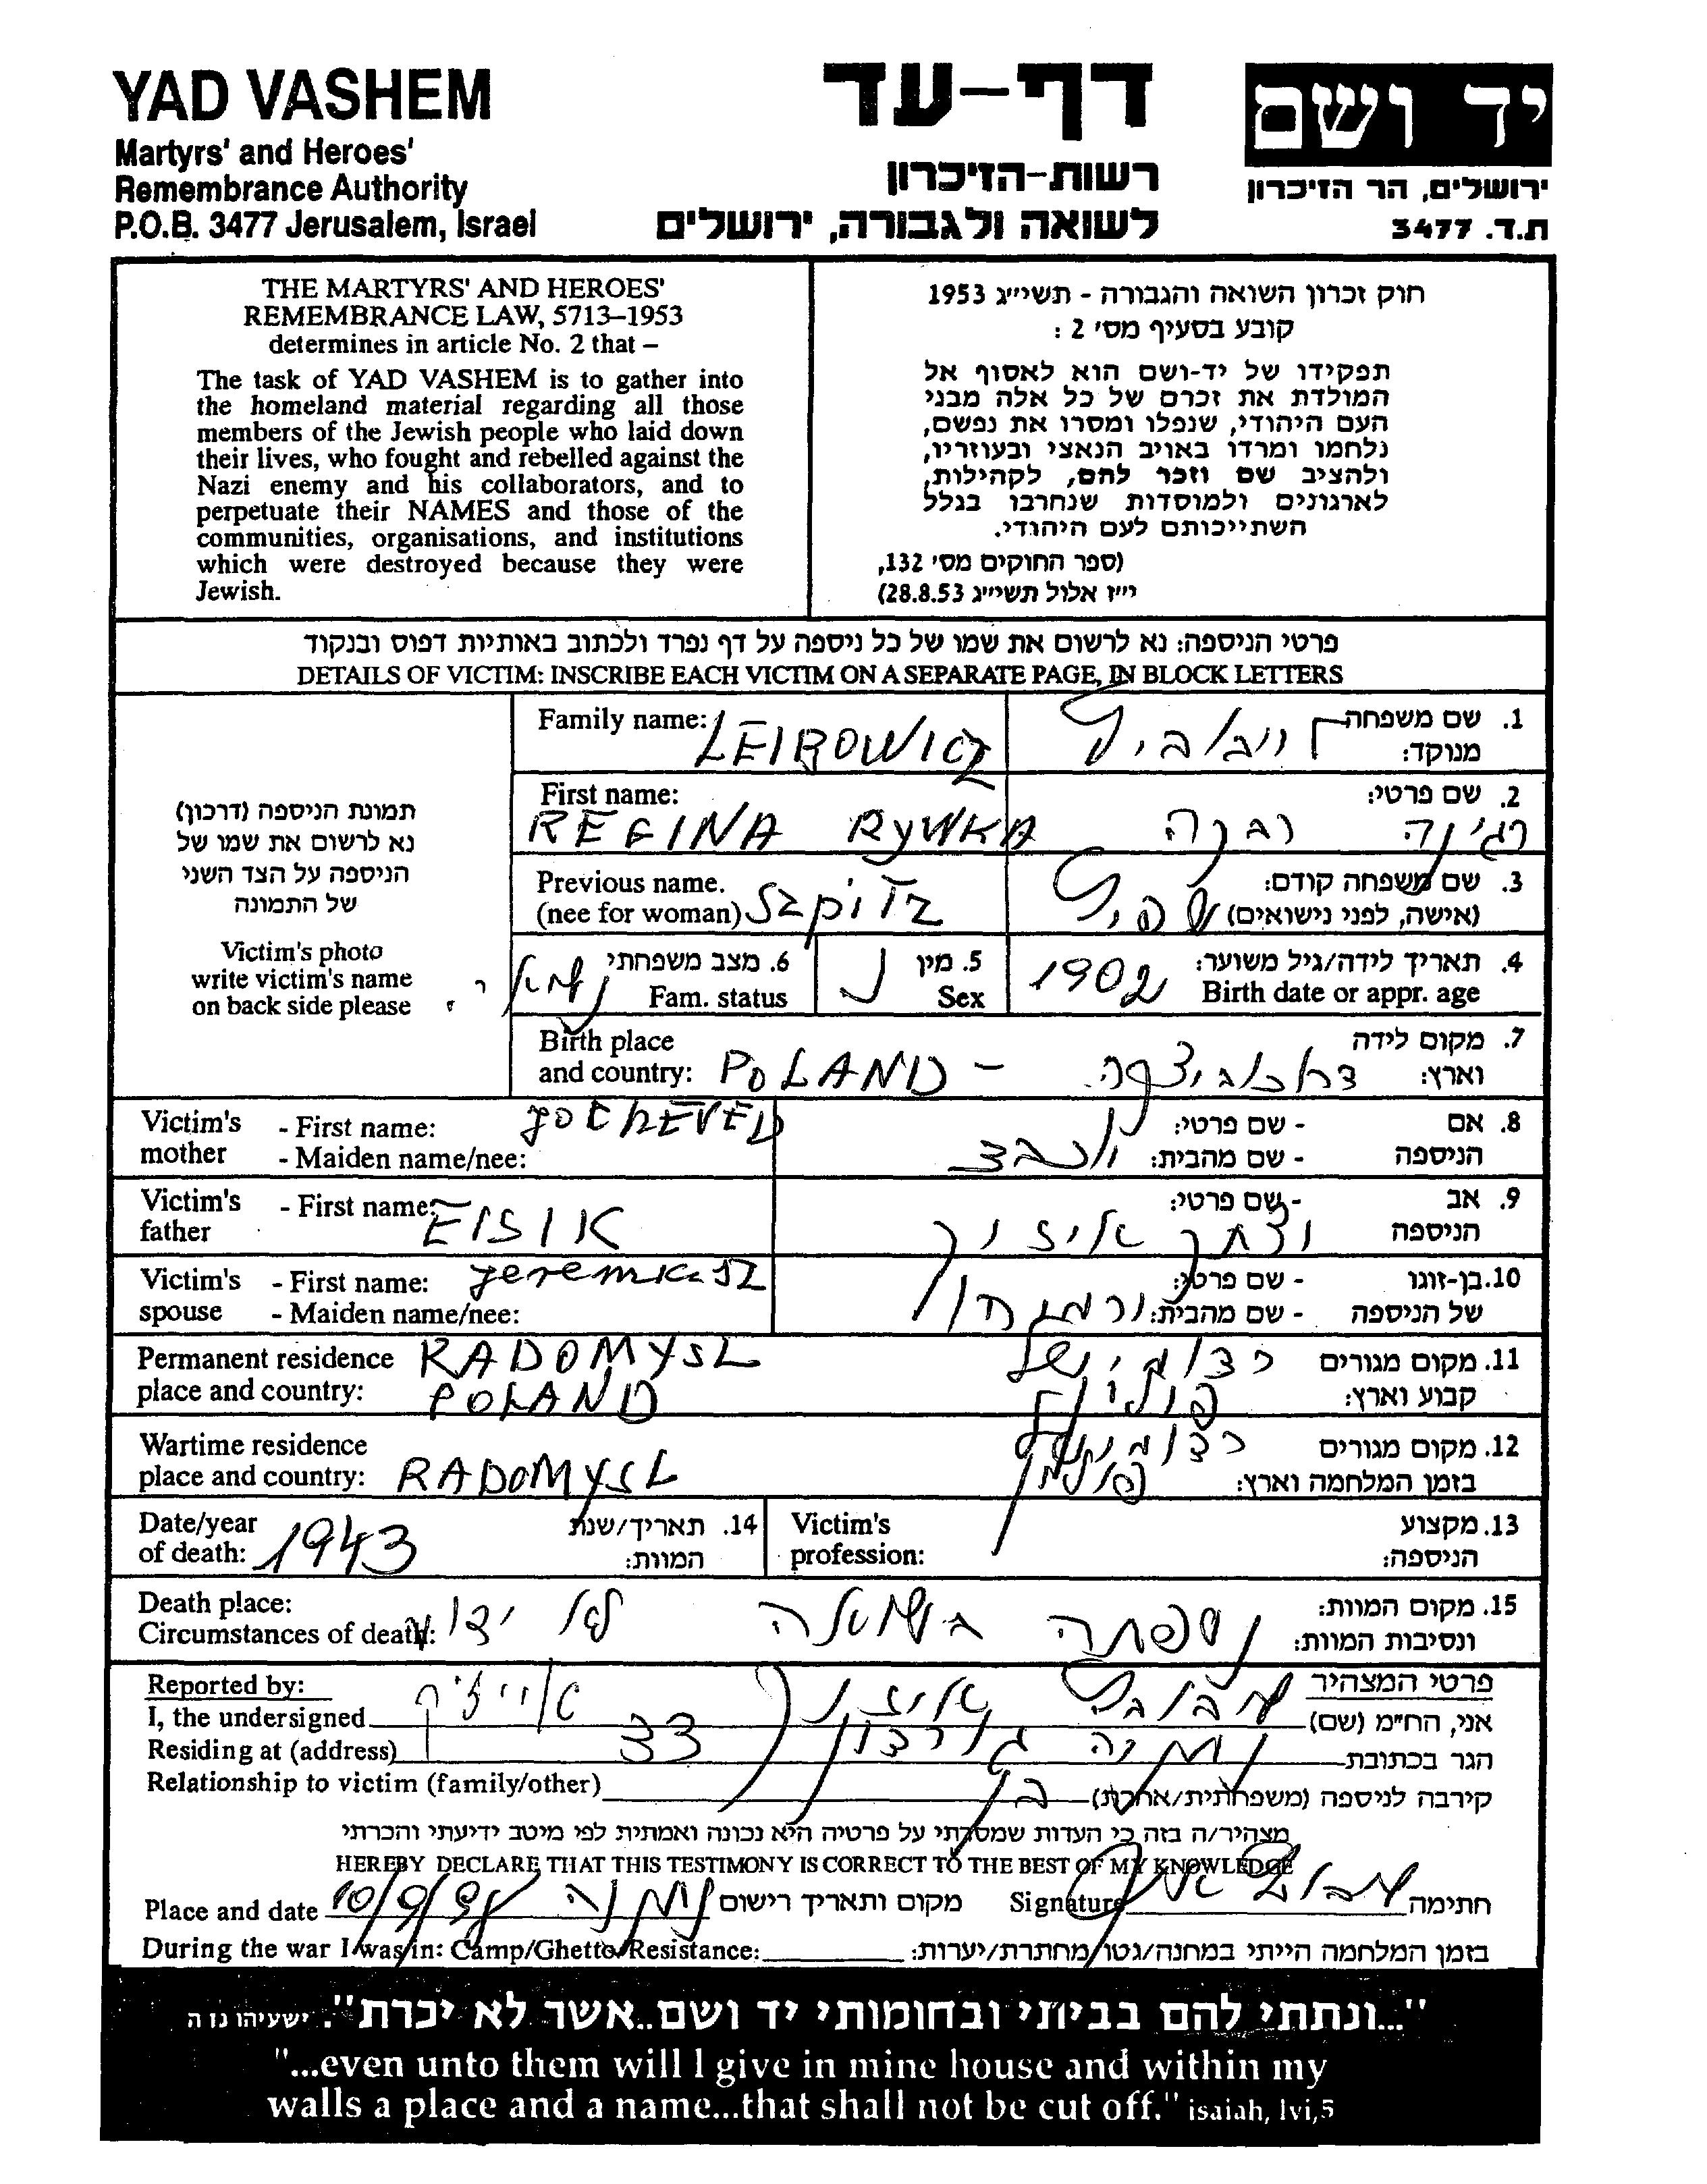 YAD VASHEM
Martyrs' and Heroes'
Remembrance Authority
P.O.B. 3477 Jerusalem, Israel
דף-עד
רשות-הזיכרון
לשואה ולגבורה, ירושלים
יד ושם
ירושלים, הר הזיכרון
ת.ד. 3477
THE MARTYRS' AND HEROES'
REMEMBRANCE LAW, 5713–1953
determines in article No. 2 that –
The task of YAD VASHEM is to gather into
the homeland material regarding all those
members of the Jewish people who laid down
their lives, who fought and rebelled against the
Nazi enemy and his collaborators, and to
perpetuate their NAMES and those of the
communities, organisations, and institutions
which were destroyed because they were
Jewish.
חוק זכרון השואה והגבורה - תשי"ג 1953
קובע בסעיף מס' 2 :
תפקידו של יד-ושם הוא לאסוף אל
המולדת את זכרם של כל אלה מבני
העם היהודי, שנפלו ומסרו את נפשם,
נלחמו ומרדו באויב הנאצי ובעוזריו,
ולהציב שם וזכר להם, לקהילות,
לארגונים ולמוסדות שנחרבו בגלל
השתייכותם לעם היהודי.
(ספר החוקים מס' 132,
י"ז אלול תשי"ג 28.8.53)
פרטי הניספה: נא לרשום את שמו של כל ניספה על דף נפרד ולכתוב באותיות דפוס ובנקוד
DETAILS OF VICTIM: INSCRIBE EACH VICTIM ON A SEPARATE PAGE, IN BLOCK LETTERS
תמונת הניספה (דרכון)
נא לרשום את שמו של
הניספה על הצד השני
של התמונה
Victim's photo
write victim's name
on back side please
Family name: LEIBOWICZ
1. שם משפחה מנוקד: לייבוביץ
First name: REGINA RYWKA
2. שם פרטי: רג'ינה רבקה
Previous name. (nee for woman) Szpitz
3. שם משפחה קודם: (אישה, לפני נישואים) שפיץ
4. תאריך לידה/גיל משוער: Birth date or appr. age 1902
5. מין Sex נ
6. מצב משפחתי Fam. status נשואה
Birth place and country: POLAND -
7. מקום לידה וארץ:
Victim's mother - First name: JOCHEVED
- Maiden name/nee:
8. אם הניספה - שם פרטי:
- שם מהבית: יוכבד
Victim's father - First name: EISIK
9. אב הניספה - שם פרטי: יצחק אייזיק
Victim's spouse - First name: Jeremiasz
- Maiden name/nee:
10. בן-זוגו של הניספה - שם פרטי:
- שם מהבית: ירמיהו
Permanent residence place and country: RADOMYSL POLAND
11. מקום מגורים קבוע וארץ: רדומישל פולין
Wartime residence place and country: RADOMYSL
12. מקום מגורים בזמן המלחמה וארץ: רדומישל פולין
Date/year of death: 1943
14. תאריך/שנת המוות:
Victim's profession:
13. מקצוע הניספה:
Death place:
Circumstances of death:
15. מקום המוות:
ונסיבות המוות: נספתה בשואה לא ידוע
Reported by:
פרטי המצהיר
I, the undersigned
אני, הח"מ (שם)
Residing at (address)
הגר בכתובת נתניה גורדון 33
Relationship to victim (family/other)
קירבה לניספה (משפחתית/אחרת) בן
מצהיר/ה בזה כי העדות שמסרתי על פרטיה היא נכונה ואמתית לפי מיטב ידיעתי והכרתי
HEREBY DECLARE THAT THIS TESTIMONY IS CORRECT TO THE BEST OF MY KNOWLEDGE
Place and date 10/9/98 נתניה מקום ותאריך רישום
Signature חתימה
During the war I was in: Camp/Ghetto/Resistance:
בזמן המלחמה הייתי במחנה/גטו/מחתרת/יערות:
"...ונתתי להם בביתי ובחומותי יד ושם..אשר לא יכרת". ישעיהו נו ה
"...even unto them will I give in mine house and within my
walls a place and a name...that shall not be cut off." isaiah, lvi,5